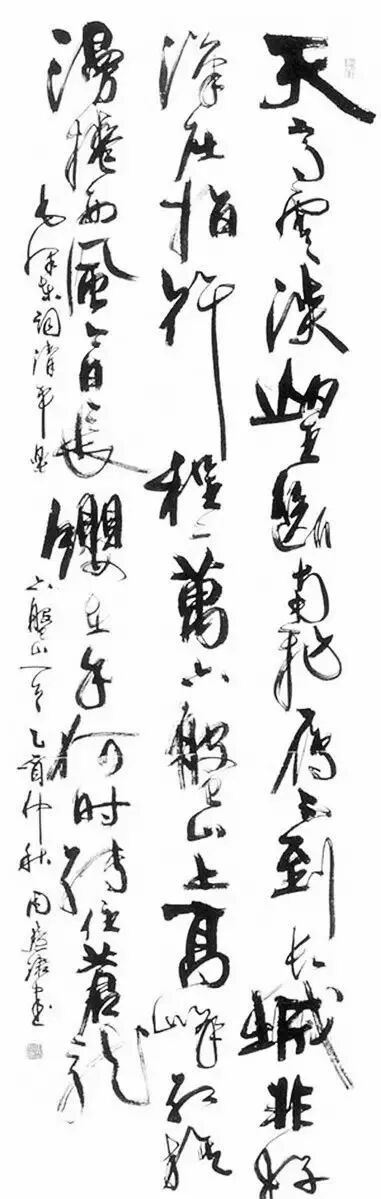 天高雲淡望斷南飛雁不到長城非好
漢屈指行程二萬六盤山上高峰紅旗
漫捲西風今日長纓在手何时縛住蒼龍
毛澤東詞清平樂
六盤山一首乙酉仲秋周慧珺書